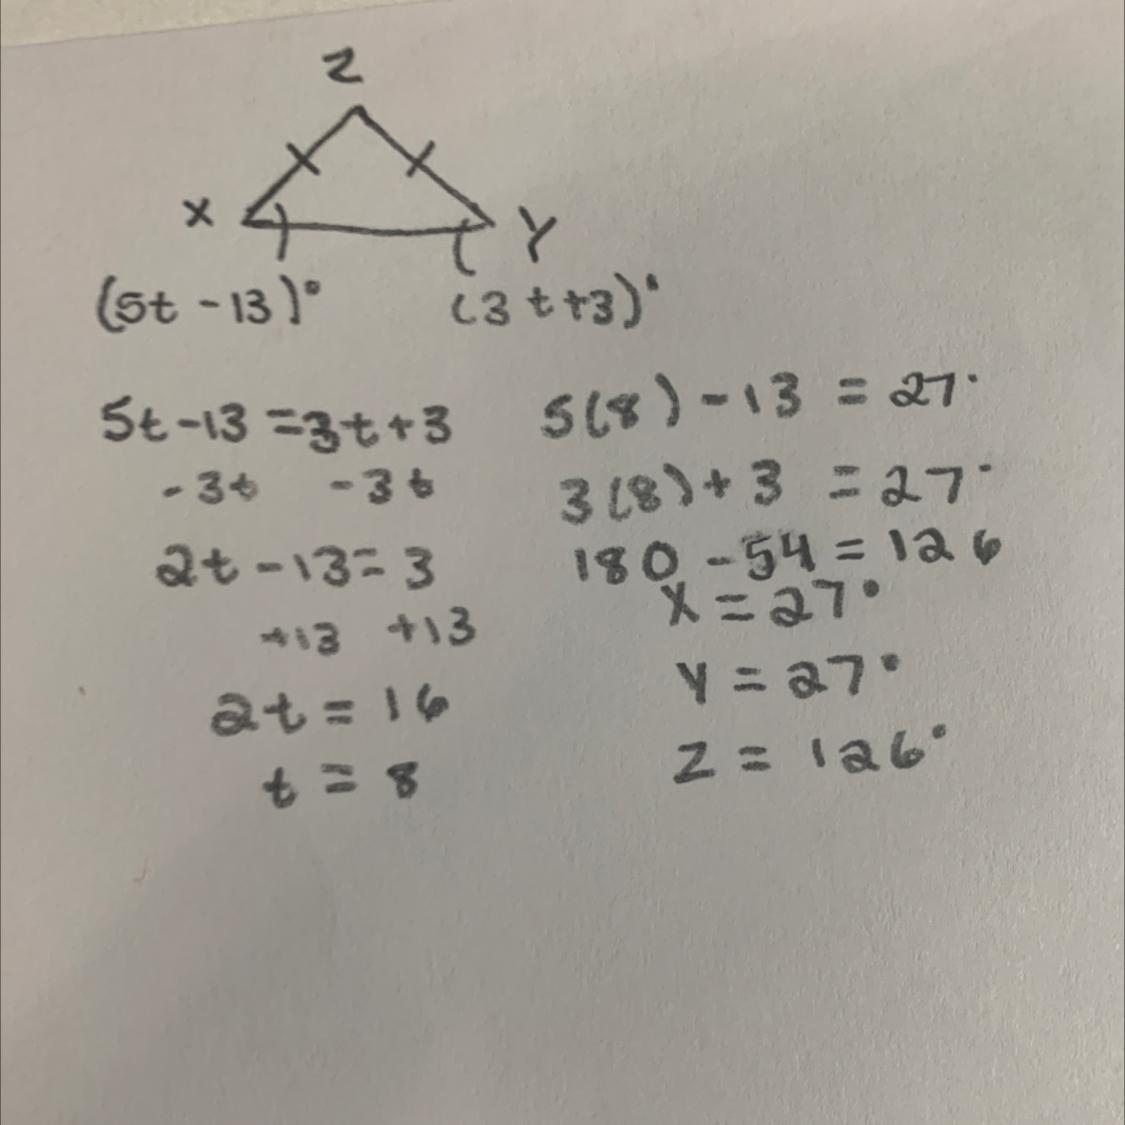 Z
X
Y
(5t - 13)°
(3t+3)°
5t-13=3t+3
-3t -3t
2t-13=3
+13 +13
2t = 16
t = 8
5(8)-13 = 27°
3(8)+3 = 27°
180 - 54 = 126
X = 27°
Y = 27°
Z = 126°